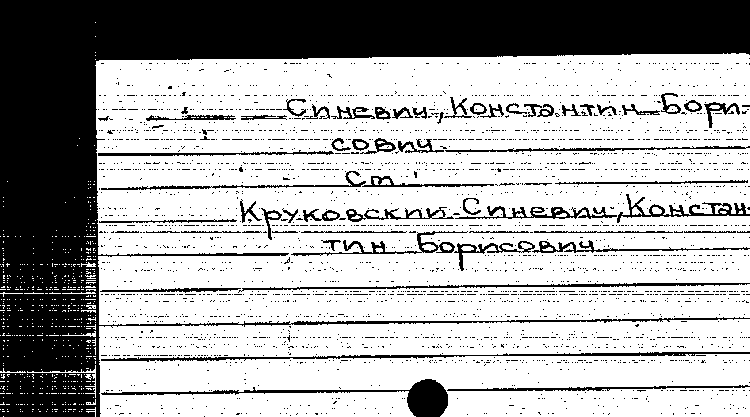 Синевич, Константин Бори-
сович
см.:
Круковский-Синевич, Констан-
тин Борисович